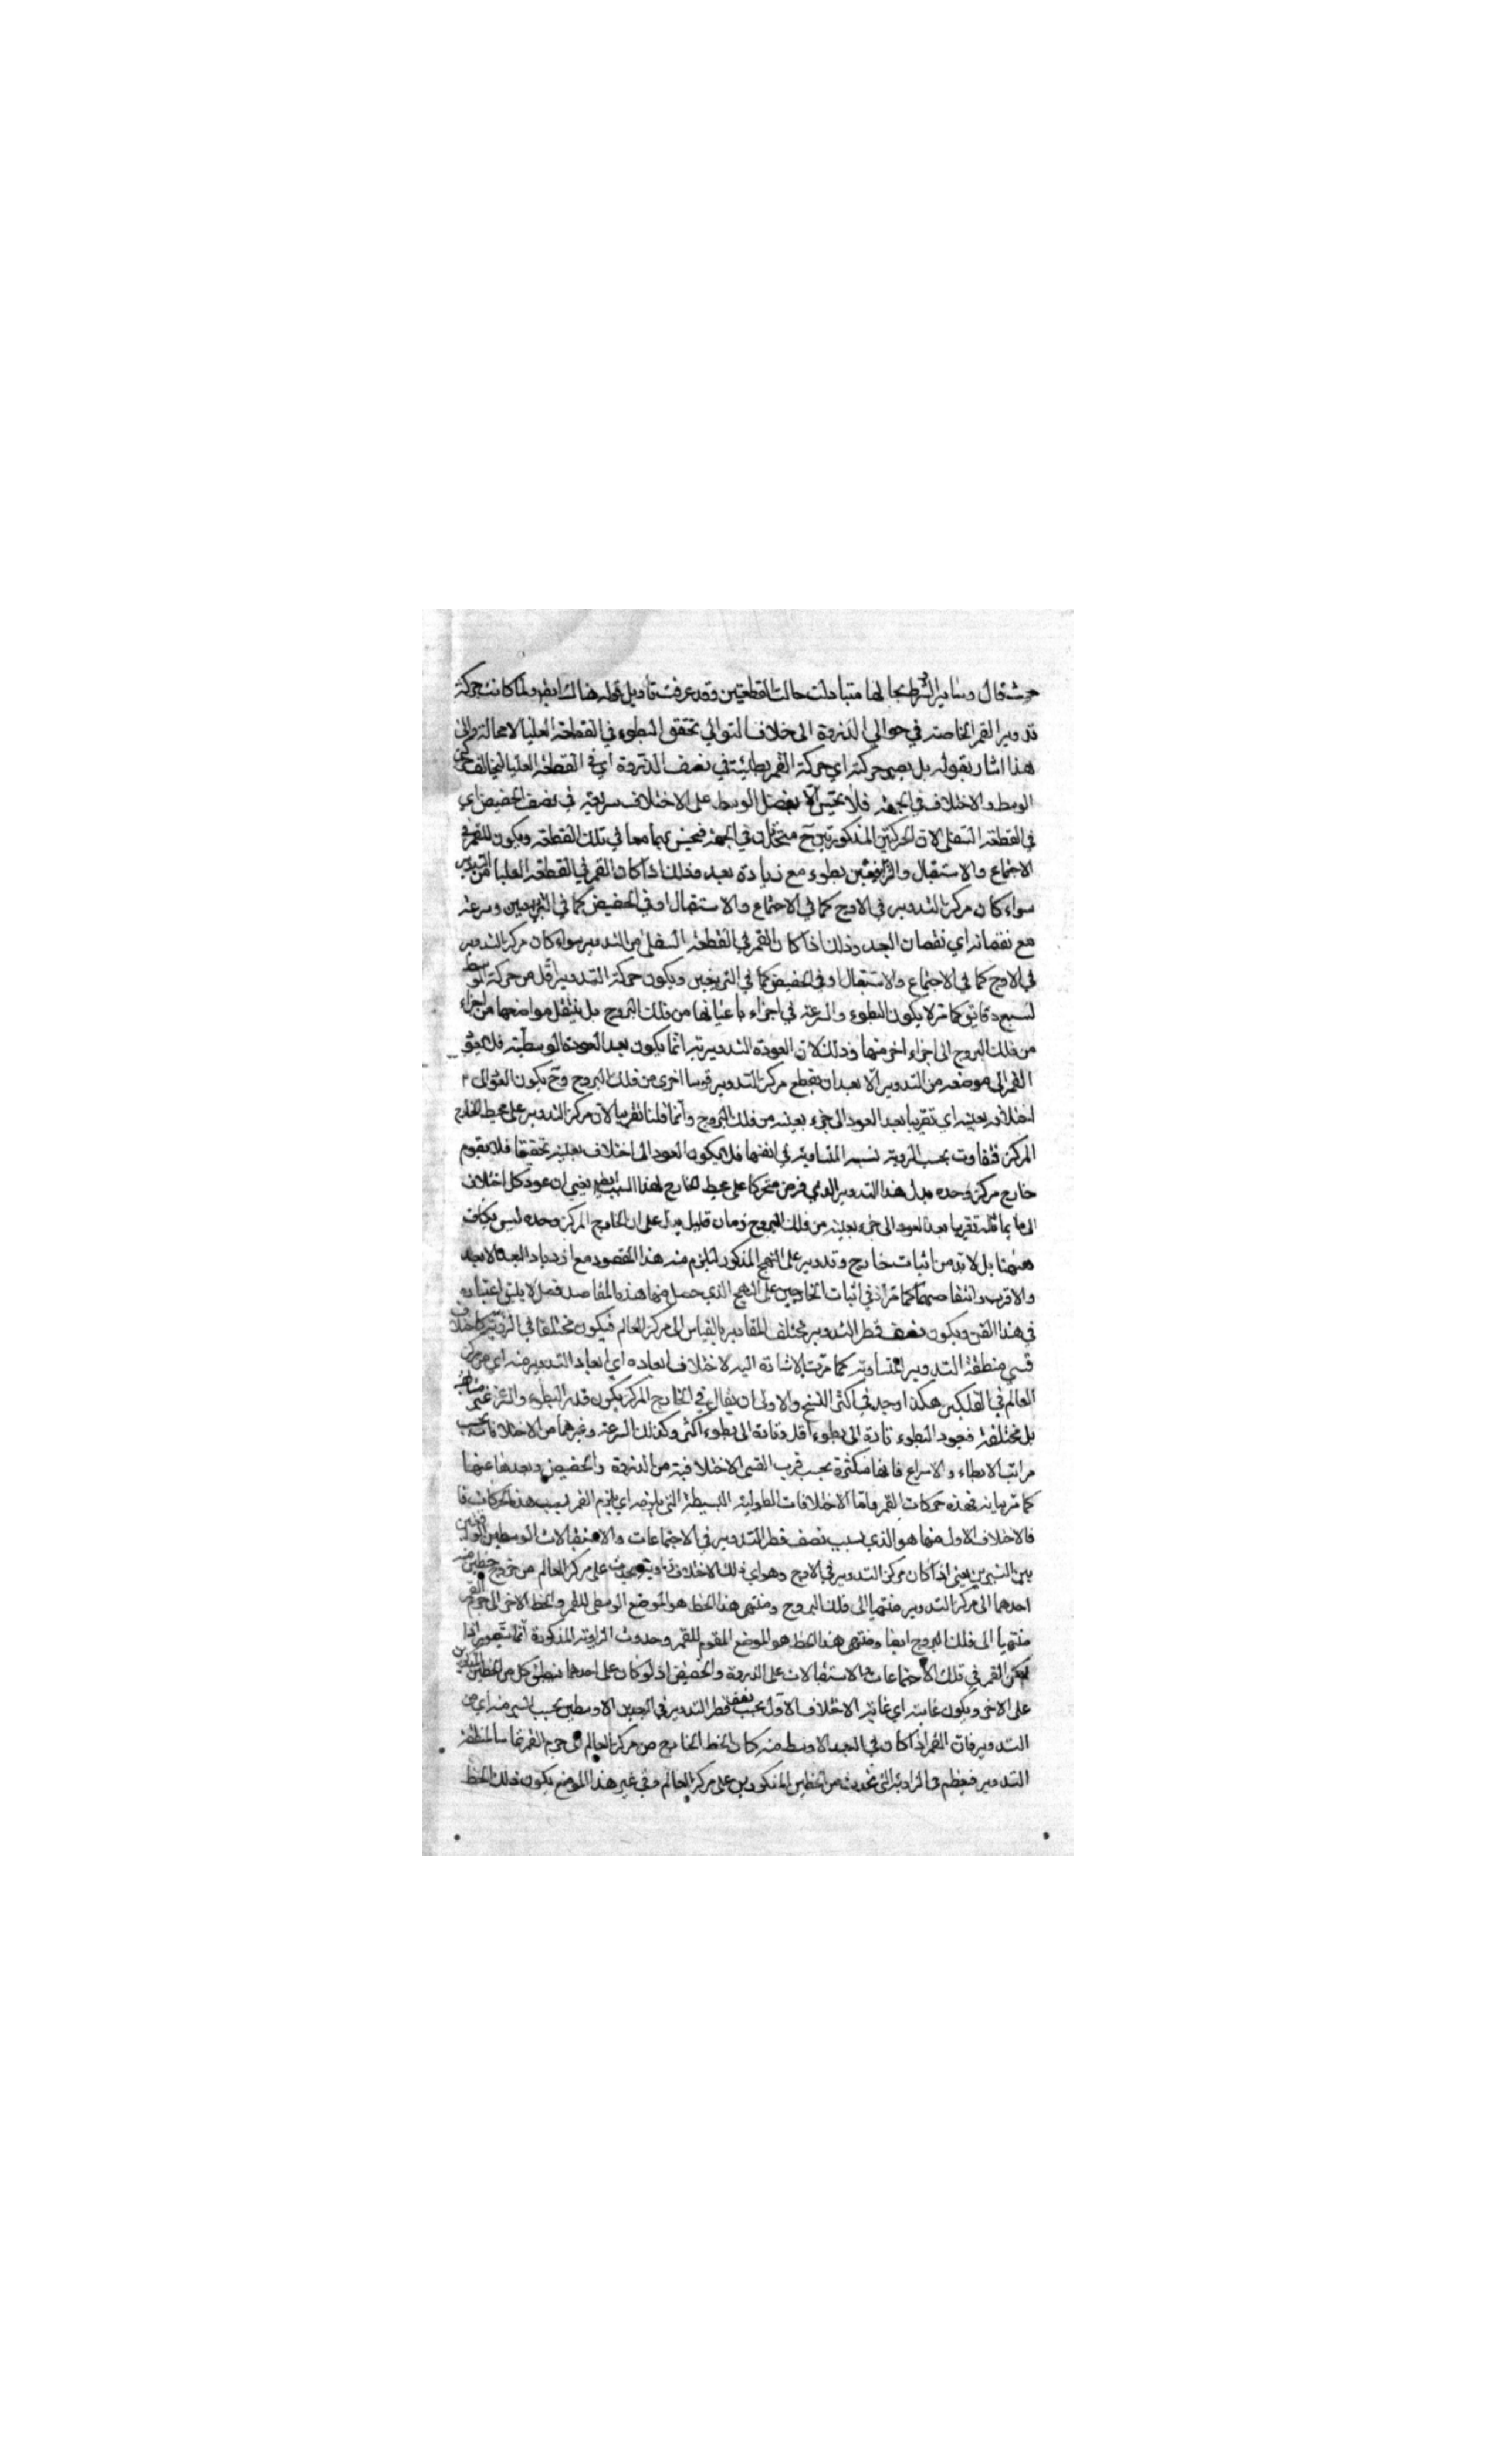 حيث قال وساير الشرايط بحالها متبادلت حالت القطعتين وقد عرفت تأويل قوله هناك ايض ولما كانت حركة
تدوير القمر الخاصة في حوالي الذروة الى خلاف التوالي تحقق البطوء في القطعة العليا لا محالة والى
هذا اشار بقوله بل يصير حركته اي حركة القمر بطيئة في نصف الذروة اي في القطعة العليا لتخالف حركتي
الوسط والاختلاف في الجهة فلا يحس الا بفضل الوسط على الاختلاف سريعة في نصف الحضيض اي
في القطعة السفلى لان الحركتين المذكورتين ح متحدتان في الجهة فيحس بهما معا في تلك القطعة ويكون للقمر في
الاجتماع والاستقبال والتربيعين بطوء مع زيادة بعد وذلك اذا كان القمر في القطعة العليا من التدوير
سواء كان مركز التدوير في الاوج كما في الاجتماع والاستقبال او في الحضيض كما في التربيعين وسرعة
مع نقصانه اي نقصان البعد وذلك اذا كان القمر في القطعة السفلى من التدوير سواء كان مركز التدوير
في الاوج كما في الاجتماع والاستقبال او في الحضيض كما في التربيعين ويكون حركة التدوير اقل من حركة الوسط
لسبع دقايق كما مر لا يكون البطوء والسرعة في اجزاء باعيانها من فلك البروج بل ينتقل مواضعها من اجزاء
من فلك البروج الى اجزاء اخر منها وذلك لان العودة التدويرية انما يكون بعد العودة الوسطية فلا يعود
القمر الى موضعه من التدوير الا بعد ان يقطع مركز التدوير قوسا اخرى من فلك البروج وح يكون العود الى
اختلاف بعينه اي تقريبا بعد العود الى جزء بعينه من فلك البروج وانما قلنا تقريبا لان مركز التدوير على محيط الخارج
المركز فتفاوت بحسب الروية نسبة المتساوية في انفسها فلا يكون العود الى اختلاف بعينه تحقيقا فلا يقوم
خارج مركز وحده بدل هذا التدوير الذي فرض متحركا على محيط الخارج لهذا السبب ايض يعني ان عود كل اختلاف
الى ما يماثله تقريبا بعد العود الى جزء بعينه من فلك البروج زمان قليل يدل على ان الخارج المركز وحده ليس بكاف
ههنا بل لا بد من اثبات خارج وتدوير على النهج المذكور ليلزم منه هذا المقصود مع ازدياد البعد الابعد
والاقرب وانتقاصهما كما مر اذ في اثبات الخارجين على النهج الذي حصل منها هذه المقاصد فضل لا يليق اعتباره
في هذا الفن ويكون نصف قطر التدوير مختلف المقادير بالقياس الى مركز العالم فيكون مختلفا في الروية كاختلاف
قسي منطقة التدوير المتساوية كما مرت الاشارة اليه لاختلاف ابعاده اي ابعاد التدوير منه اي من مركز
العالم في الفلكين هكذا وجد في اكثر النسخ والاولى ان يقال في الخارج المركز يكون قدر البطوء والسرعة غير متشابهة
بل مختلفة فيعود البطوء تارة الى بطوء اقل وتارة الى بطوء اكثر وكذلك السرعة وغيرهما من الاختلافات بحسب
مراتب الابطاء والاسراع فانها متكثرة بحسب قرب القسي الاختلافية من الذروة والحضيض وبعدها عنهما
كما مر بيانه فهذه حركات القمر واما الاختلافات الطولية البسيطة التي يلزمه اي يلزم القمر بسبب هذه الحركات
فالاختلاف الاول منها هو الذي بسبب نصف قطر التدوير في الاجتماعات والاستقبالات الوسطين الواقعين
بين النيرين يعني اذا كان مركز التدوير في الاوج وهو اي ذلك الاختلاف زاوية يحدث على مركز العالم من خروج خطين منه
احدهما الى مركز التدوير منتهيا الى فلك البروج ومنتهى هذا الخط هو الموضع الوسطي للقمر والخط الاخر الى جرم القمر
منتهيا الى فلك البروج ايضا ومنتهى هذا الخط هو الموضع المقوم للقمر وحدوث الزاوية المذكورة انما يتصور اذا
لم يكن القمر في تلك الاجتماعات والاستقبالات على الذروة والحضيض اذ لو كان على احدهما ينطبق كل من الخطين المذكورين
على الاخر ويكون غايته اي غاية الاختلاف الاول بحسب نصف قطر التدوير في البعدين الاوسطين بحسب المسير منه اي من
التدوير فان القمر اذا كان في البعد الاوسط منه كان الخط الخارج من مركز العالم الى جرم القمر مماسا لمنطقة
التدوير فيعظم ح الزاوية التي تحدث من الخطين المذكورين على مركز العالم وفي غير هذا الموضع يكون ذلك الخط